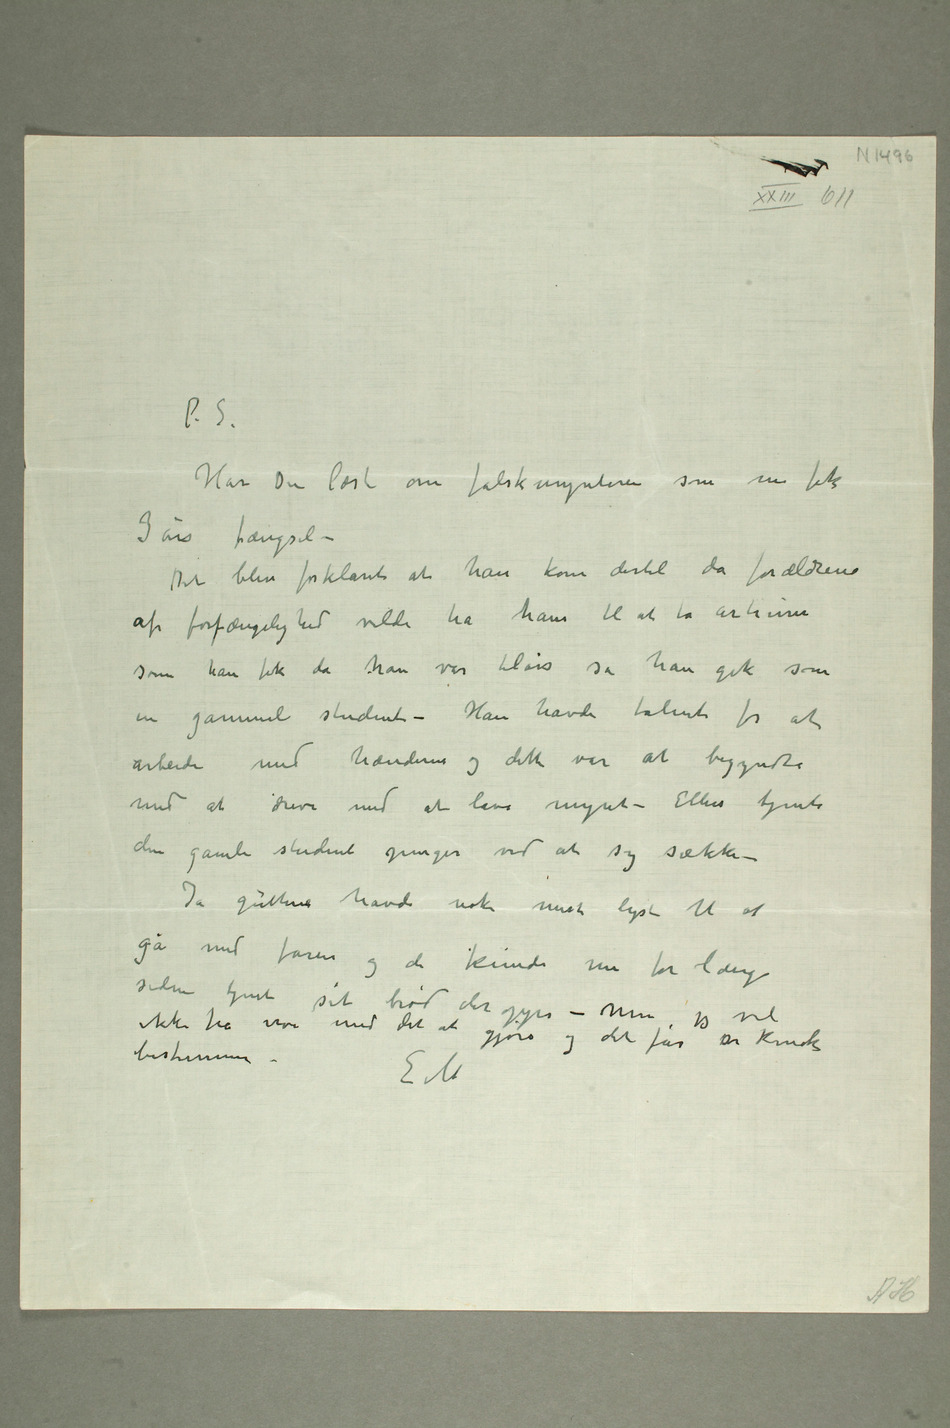 N 1496
XXIII 611
P. S.
Har Du læst om falskmynteren som nu fik
3 års fængsel –
Det blev forklaret at han kom dertil da forældrene
af forfængelighed vilde ha ham til at ta artium
som han fik da han var tilårs så han gik som
en gammel student – Han havde talent for at
arbeide med hænderne og dette var at begyndte
med at drive med at lave mynt – Ellers tjente
den gamle student penger ved at sy sække –
Ja guttene havde nok mest lyst til at
gå med faren og de kunde nu for længe
siden tjent sit brød der – Men jeg vil
ikke ha noe med det at gjøre og det får
bestemme –
E M